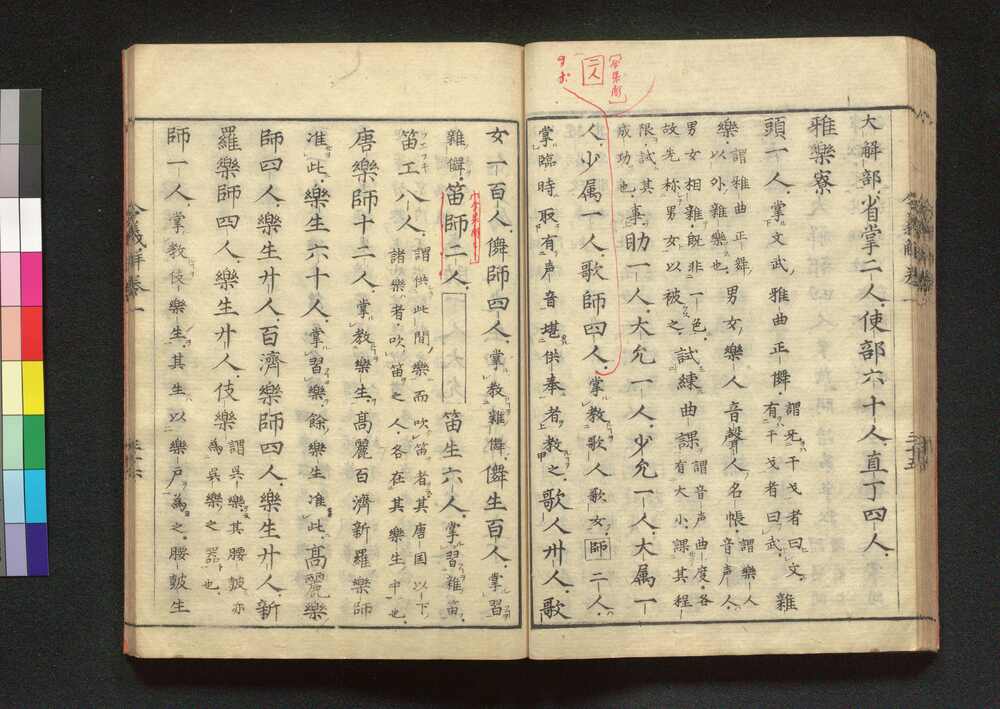 大解部省掌二人使部六十人直丁四人
雅樂寮
頭一人掌文武雅曲正儛謂无干戈者曰文有干戈者曰武雜
樂謂雅曲正舞以外雜樂也男女樂人音聲人名帳謂樂人音声人
男女相雜既非一色故先称男女以被之試練曲課謂音声曲度各有大小課其程
限試其成功也事助一人大允一人少允一人大属一
人少属一人歌師四人掌教歌人歌女師二人
掌臨時取有声音堪供奉者教之歌人卅人歌
令義解卷一
三十五
二人
女一百人儛師四人掌教雜儛儛生百人掌習
雜儛笛師二人笛生六人掌習雜笛
笛工八人謂供此間樂而吹笛者其唐国以下諸樂者吹笛之人各在其樂生中也
唐樂師十二人掌教樂生髙麗百濟新羅樂師
准此樂生六十人掌習樂餘樂生准此髙麗樂
師四人樂生廿人百濟樂師四人樂生廿人新
羅樂師四人樂生廿人伎樂謂吳樂其腰皷亦為吳樂之器也
師一人掌教伎樂生其生以樂戶為之腰皷生
令義解卷一
三十六